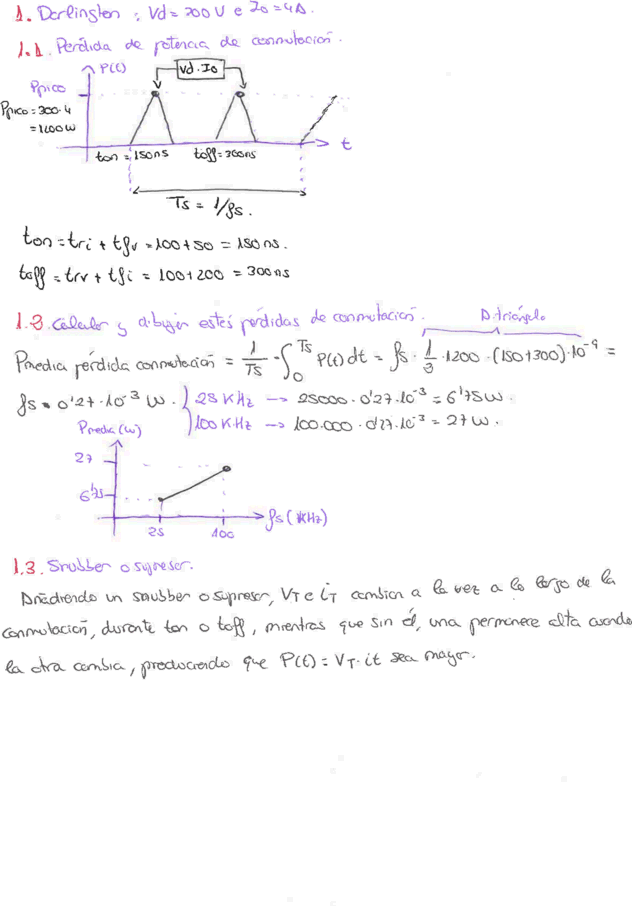 1. Darlington : Vd = 300 V e Io = 4A.
1.1. Pérdida de potencia de conmutación.
P(t)
Vd.Io
Ppico
Ppico = 300.4
= 1200 W
t
ton = 150ns
toff = 300ns
Ts = 1/fs.
ton = tri + tfv = 100 + 50 = 150 ns.
toff = trv + tfi = 100 + 200 = 300 ns
1.2. Calcular y dibujar estas pérdidas de conmutación. A. triángulo
Pmedia pérdida conmutación = 1/Ts · ∫₀^Ts P(t) dt = fs · 1/2 · 1200 · (150 + 300) · 10^-9 =
fs · 0'27 · 10^-3 W. } 25 KHz → 25000 · 0'27 · 10^-3 = 6'75 W.
} 100 KHz → 100.000 · 0'27 · 10^-3 = 27 W.
Pmedia (W)
27
6'75
25
100
fs (KHz)
1.3. Snubber o supresor.
Añadiendo un snubber o supresor, VT e iT cambian a la vez a lo largo de la
conmutación, durante ton o toff, mientras que sin él, una permanece alta cuando
la otra cambia, produciendo que P(t) = VT · it sea mayor.